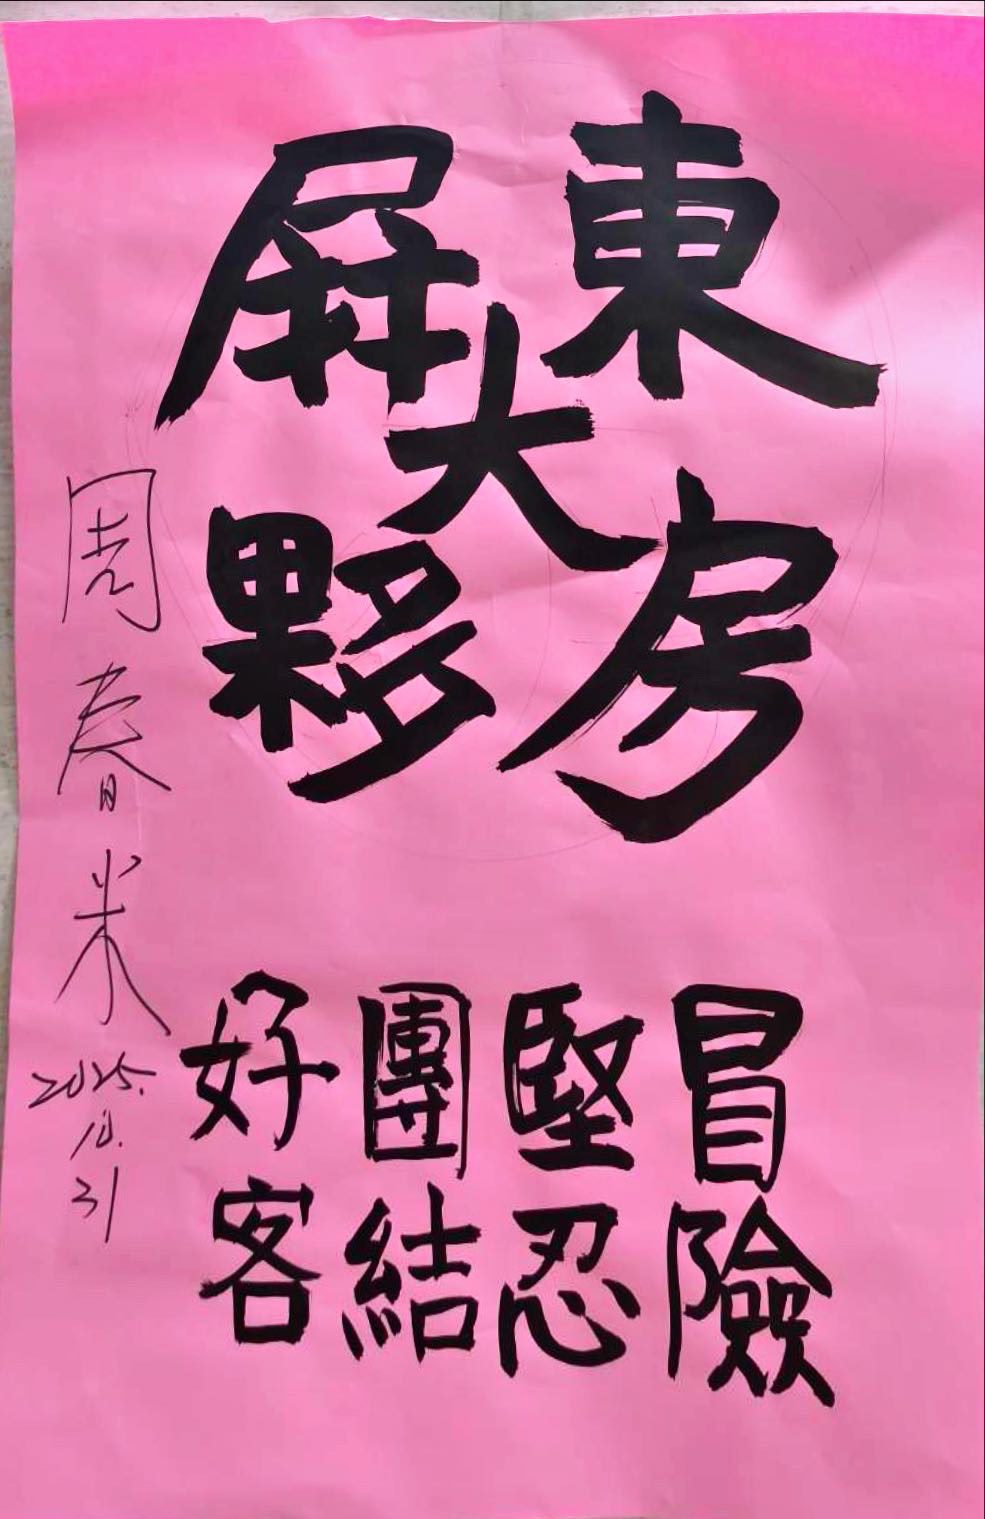 屏東
大
夥房
冒險
堅忍
團結
好客
周春米
2025.
10.
31